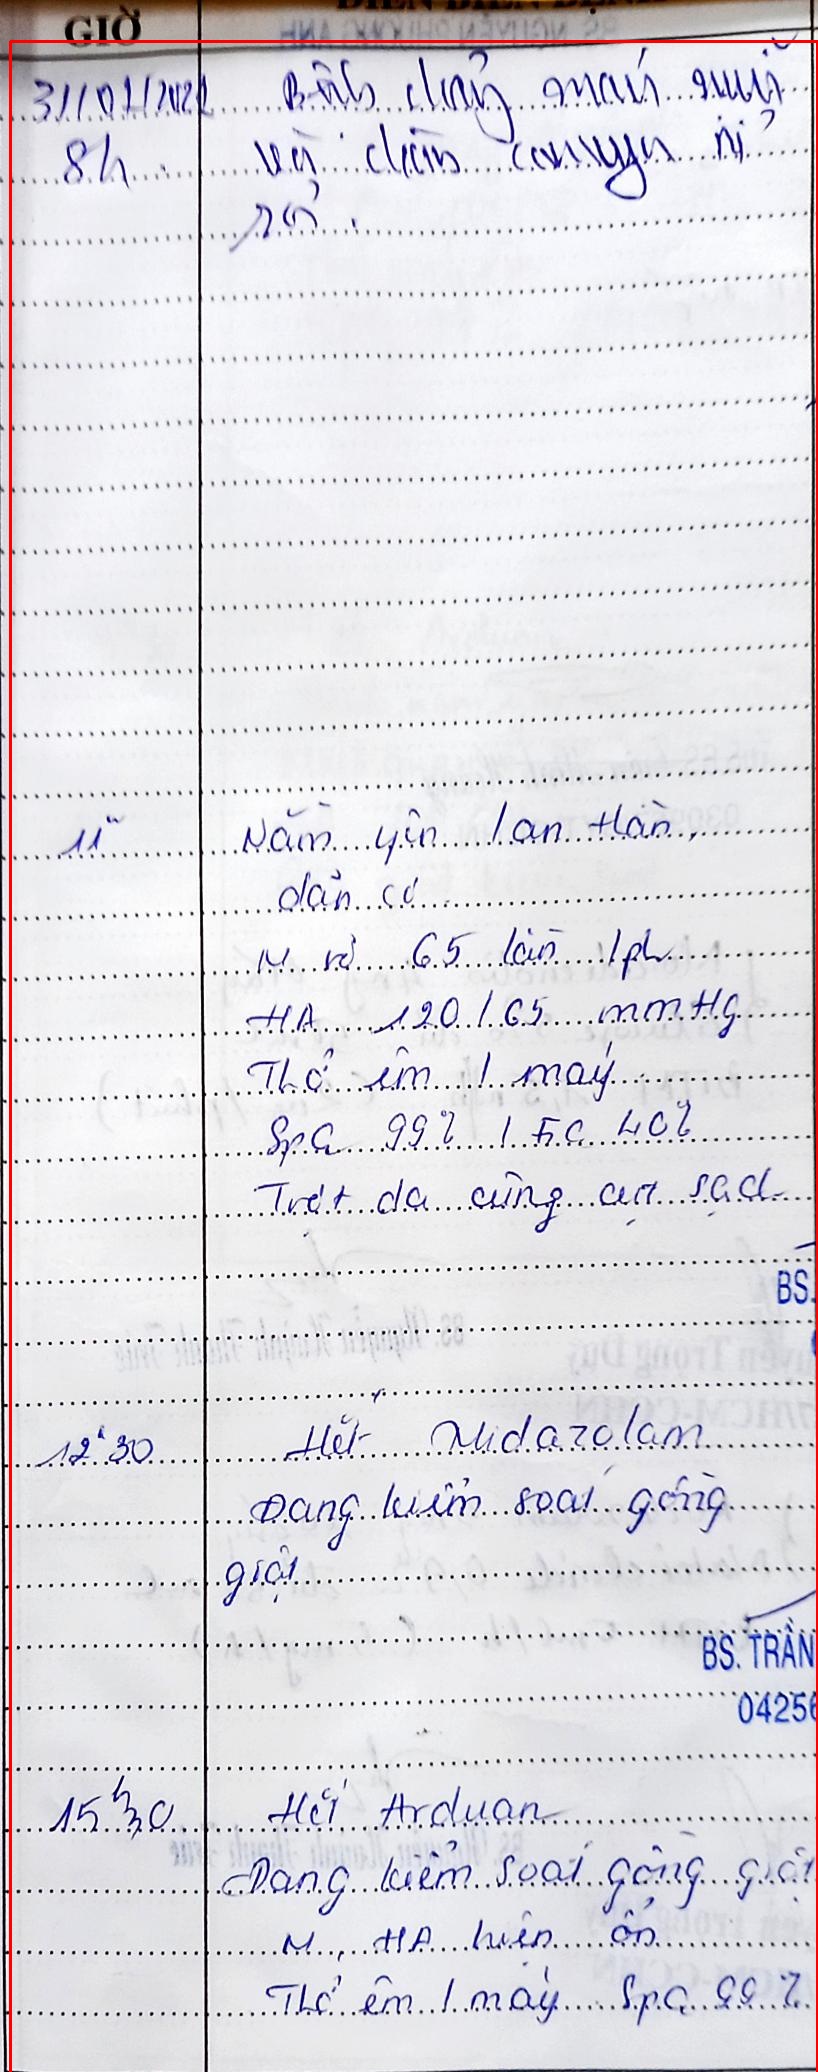 GIỜ
31/01/2022 Bệnh chảy máu mũi
8h. và chân
rỉ
11h Nằm yên / an thần,
dãn cơ
M rõ 65 lần /ph
HA 120/65 mmHg
Thở êm / máy
SpO2 99% / FiO2 40%
da cũng sạch
BS.
12h30 Hết Midazolam
Đang kiểm soát gồng
giật
BS. TRẦN
04256
15h30 Hết Arduan
Đang kiểm soát gồng giật
M, HA hiện ổn
Thở êm / máy SpO2 99%